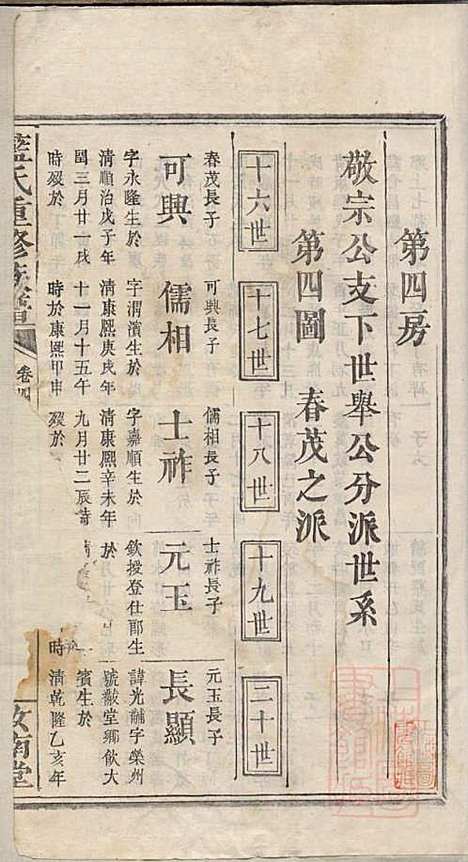 第四房
敬宗公支下世舉公分派世系
第四圖 春茂之派
十六世 十七世 十八世 十九世 二十世
春茂長子
可興
字永隆生於
清順治戊子年
閏三月廿一戌
時歿於
可興長子
儒相
字渭濱生於
清康熙庚戌年
十一月十五午
時歿於康熙甲申
儒相長子
士祚
字嘉順生於
清康熙辛未年
九月廿二辰
歿於
士祚長子
元玉
欽授登仕郎生
於
時
元玉長子
長顯
諱光黼字榮州
號黻堂鄉飲大
賓生於
清乾隆乙亥年
藍氏重修族譜
卷四
汝南堂